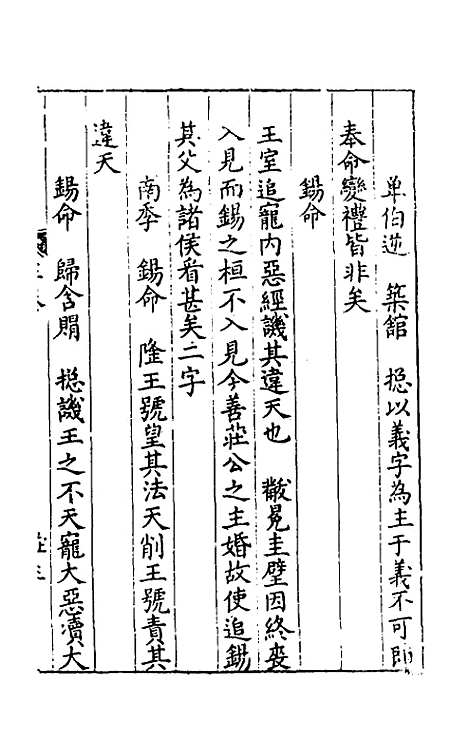 單伯逆　築館　捴以義字為主于義不可即
奉命變禮皆非矣
錫命
王室追寵內惡經譏其違天也　黻冕圭璧因終喪
入見而錫之桓不入見今善莊公之主婚故使追錫
其父為諸侯看甚矣二字
南季　錫命　隆王號望其法天削王號責其
違天
錫命　歸含賵　捴譏王之不天寵大惡瀆大